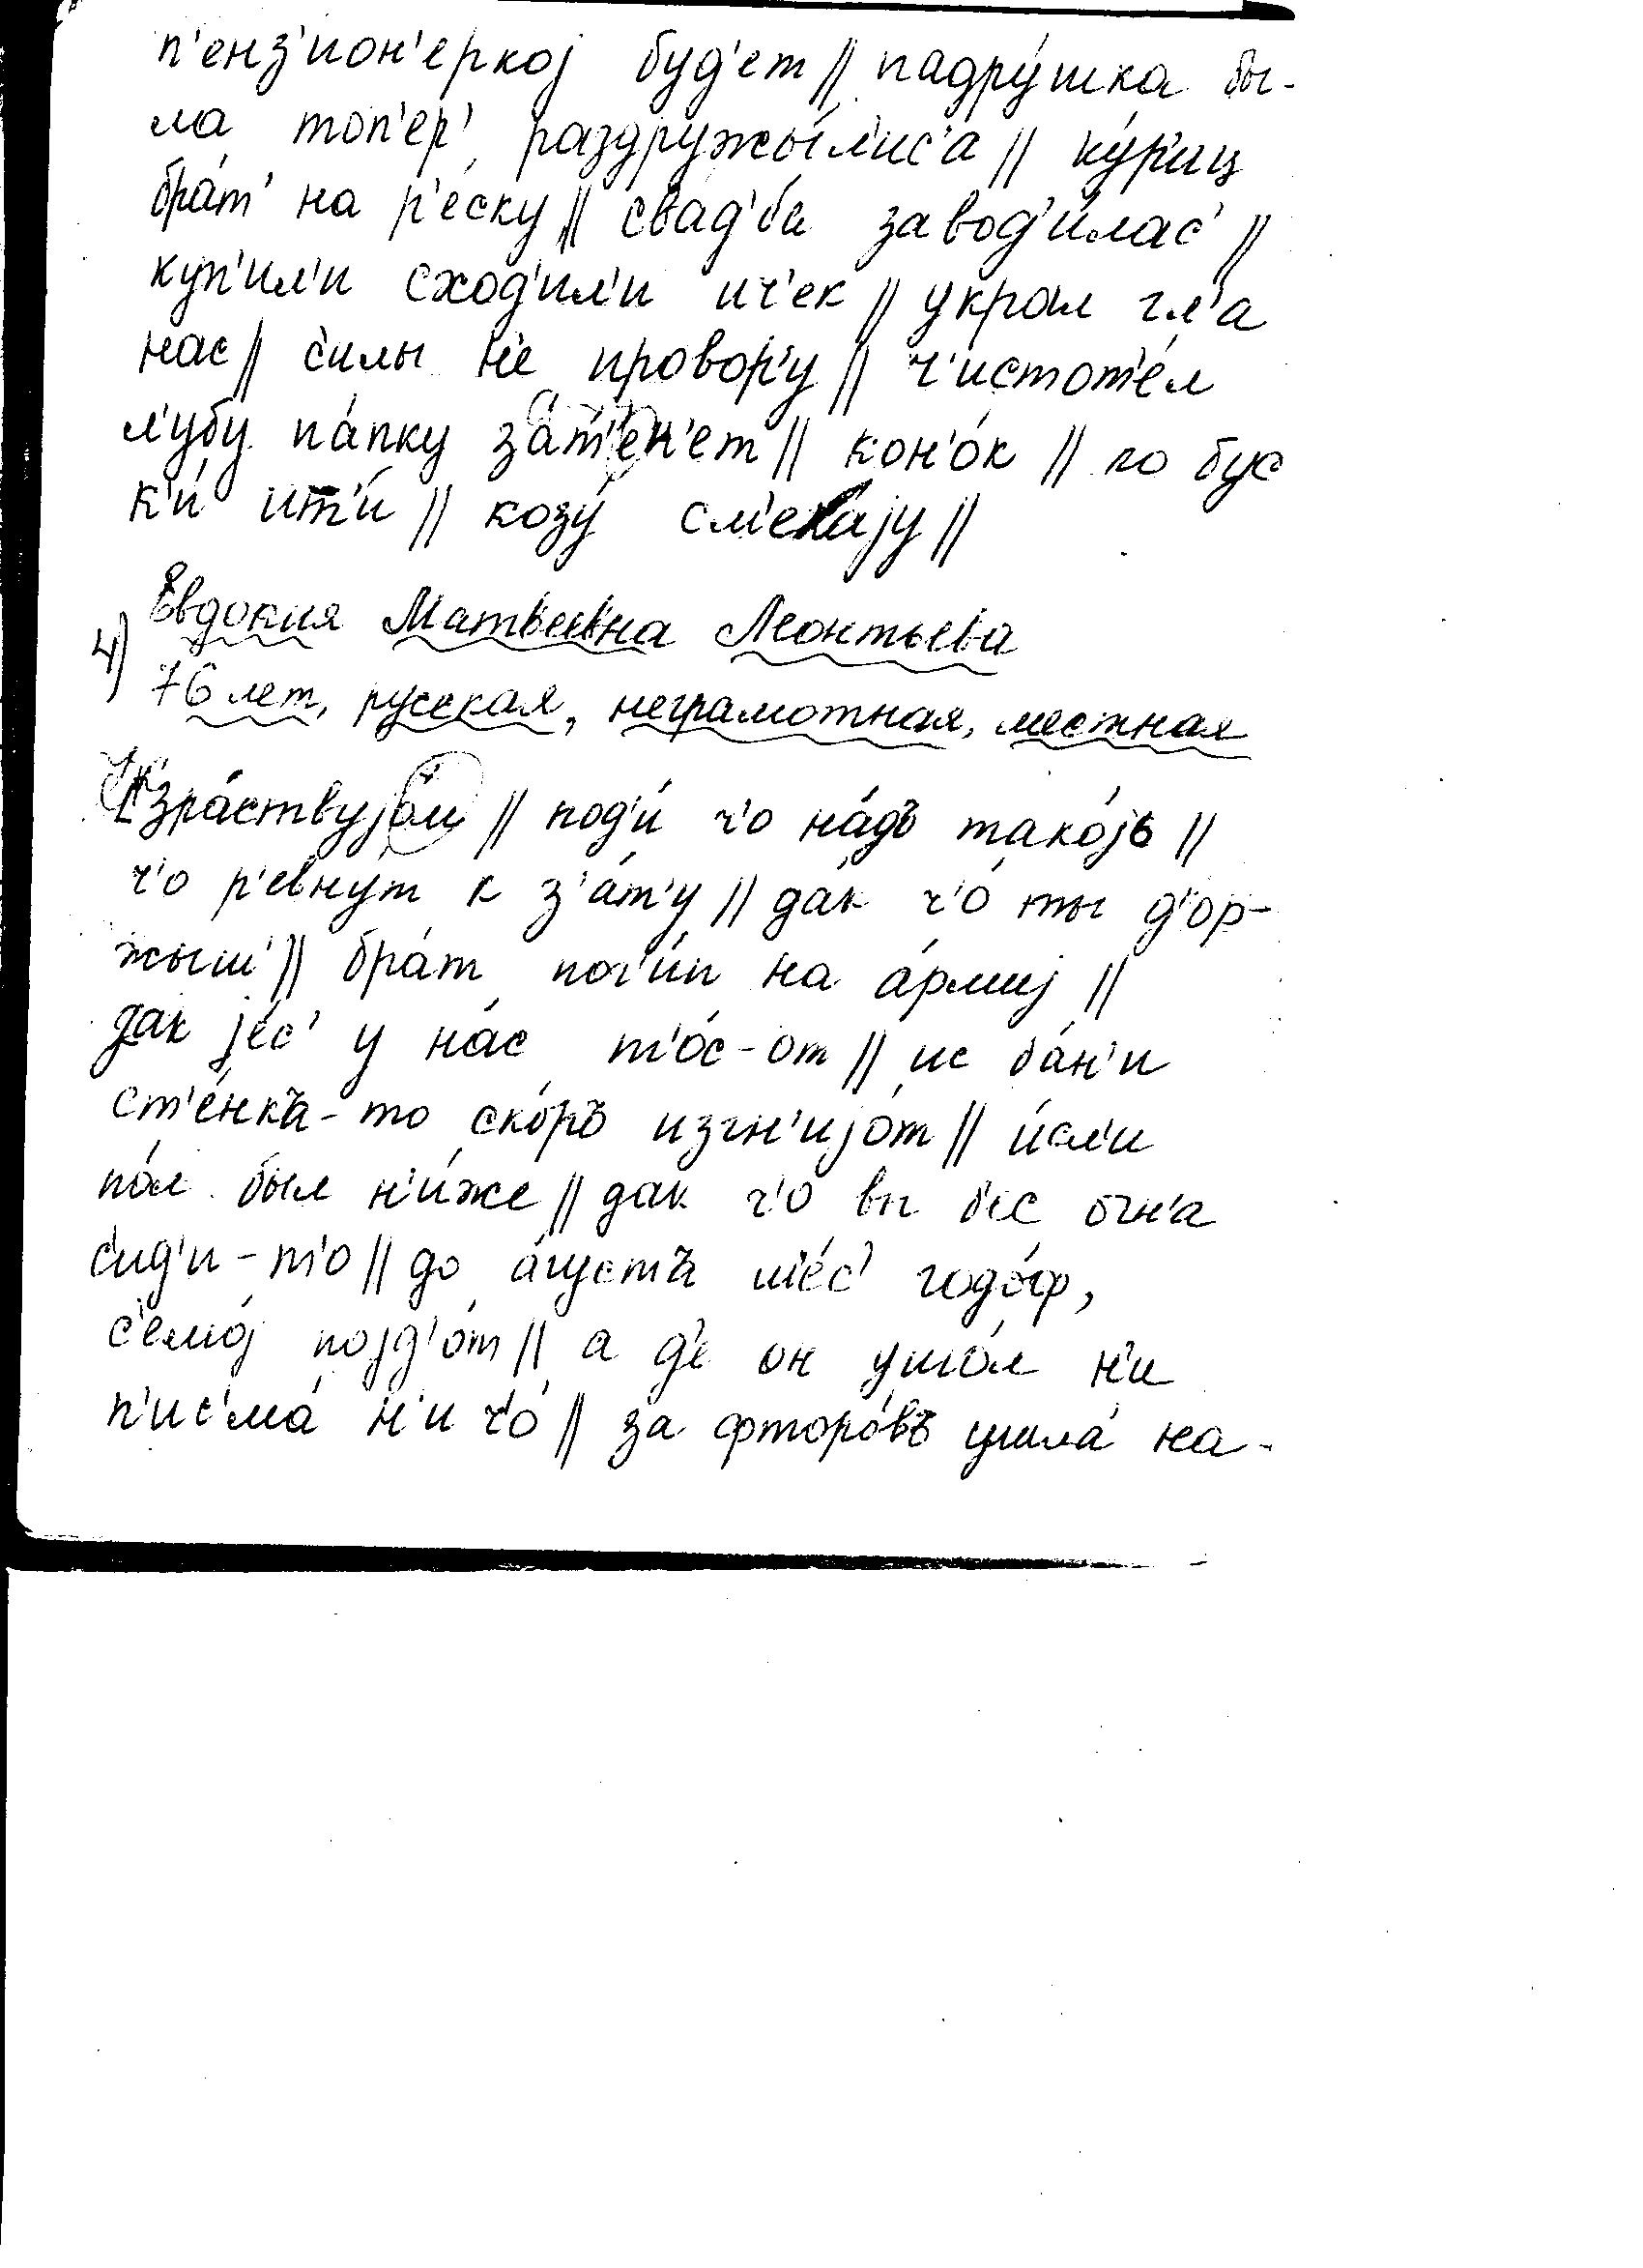 п'енз'ион'еркој буд'ет // падру́шка бы-
ла топ'ер' раздружы́л'ис'а // ку́р'иц
бра́т' на р'е́ску // сва́д'ба завод'и́лас' //
куп'ил'и сход'ил'и ич'ек // украл гл'а
нас // с'илы н'е провор'у // ч'истот'е́л
л'убу па́пку за́т'ен'ет // кон'о́к // по бус
к'и́ ит'и́ // козу́ см'ека́ју //
4) Евдокия Матвеевна Леонтьева
76 лет, русская, неграмотная, местная
Зра́ствујом // под'и́ ч'о на́дъ тако́јь //
ч'о р'евну́т к з'а́т'у // да́к ч'о́ ты д'ор-
жыш' // бра́т пог'и́п на а́рмиј //
дак је́с' у на́с т'о́с-от // ис ба́н'и
ст'е́нкъ-то ско́ръ изгн'ијо́т // и́сл'и
по́л был н'и́же // дак ч'о вы б'ес огн'а
с'ид'и-т'о // до а́густъ ше́с' годо́ф,
с'емо́ј појд'о́т // а д'е он ушо́л н'и
п'ис'ма́ н'и ч'о́ // за фторо́въ ушла́ на-